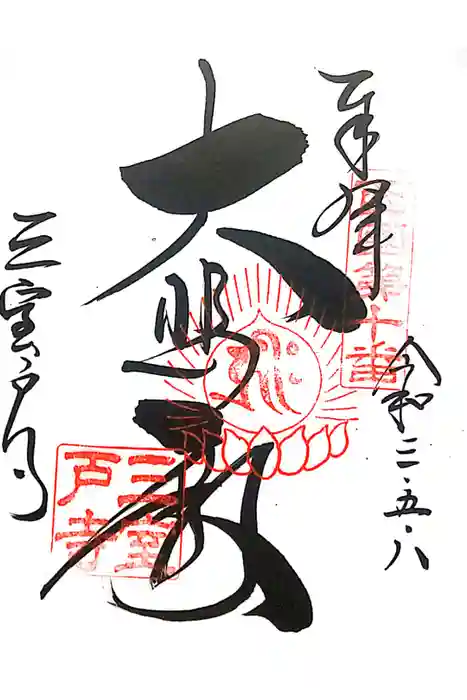 奉拝
西国第十番
令和三・五・八
大悲殿
三室戸寺
三室
戸寺